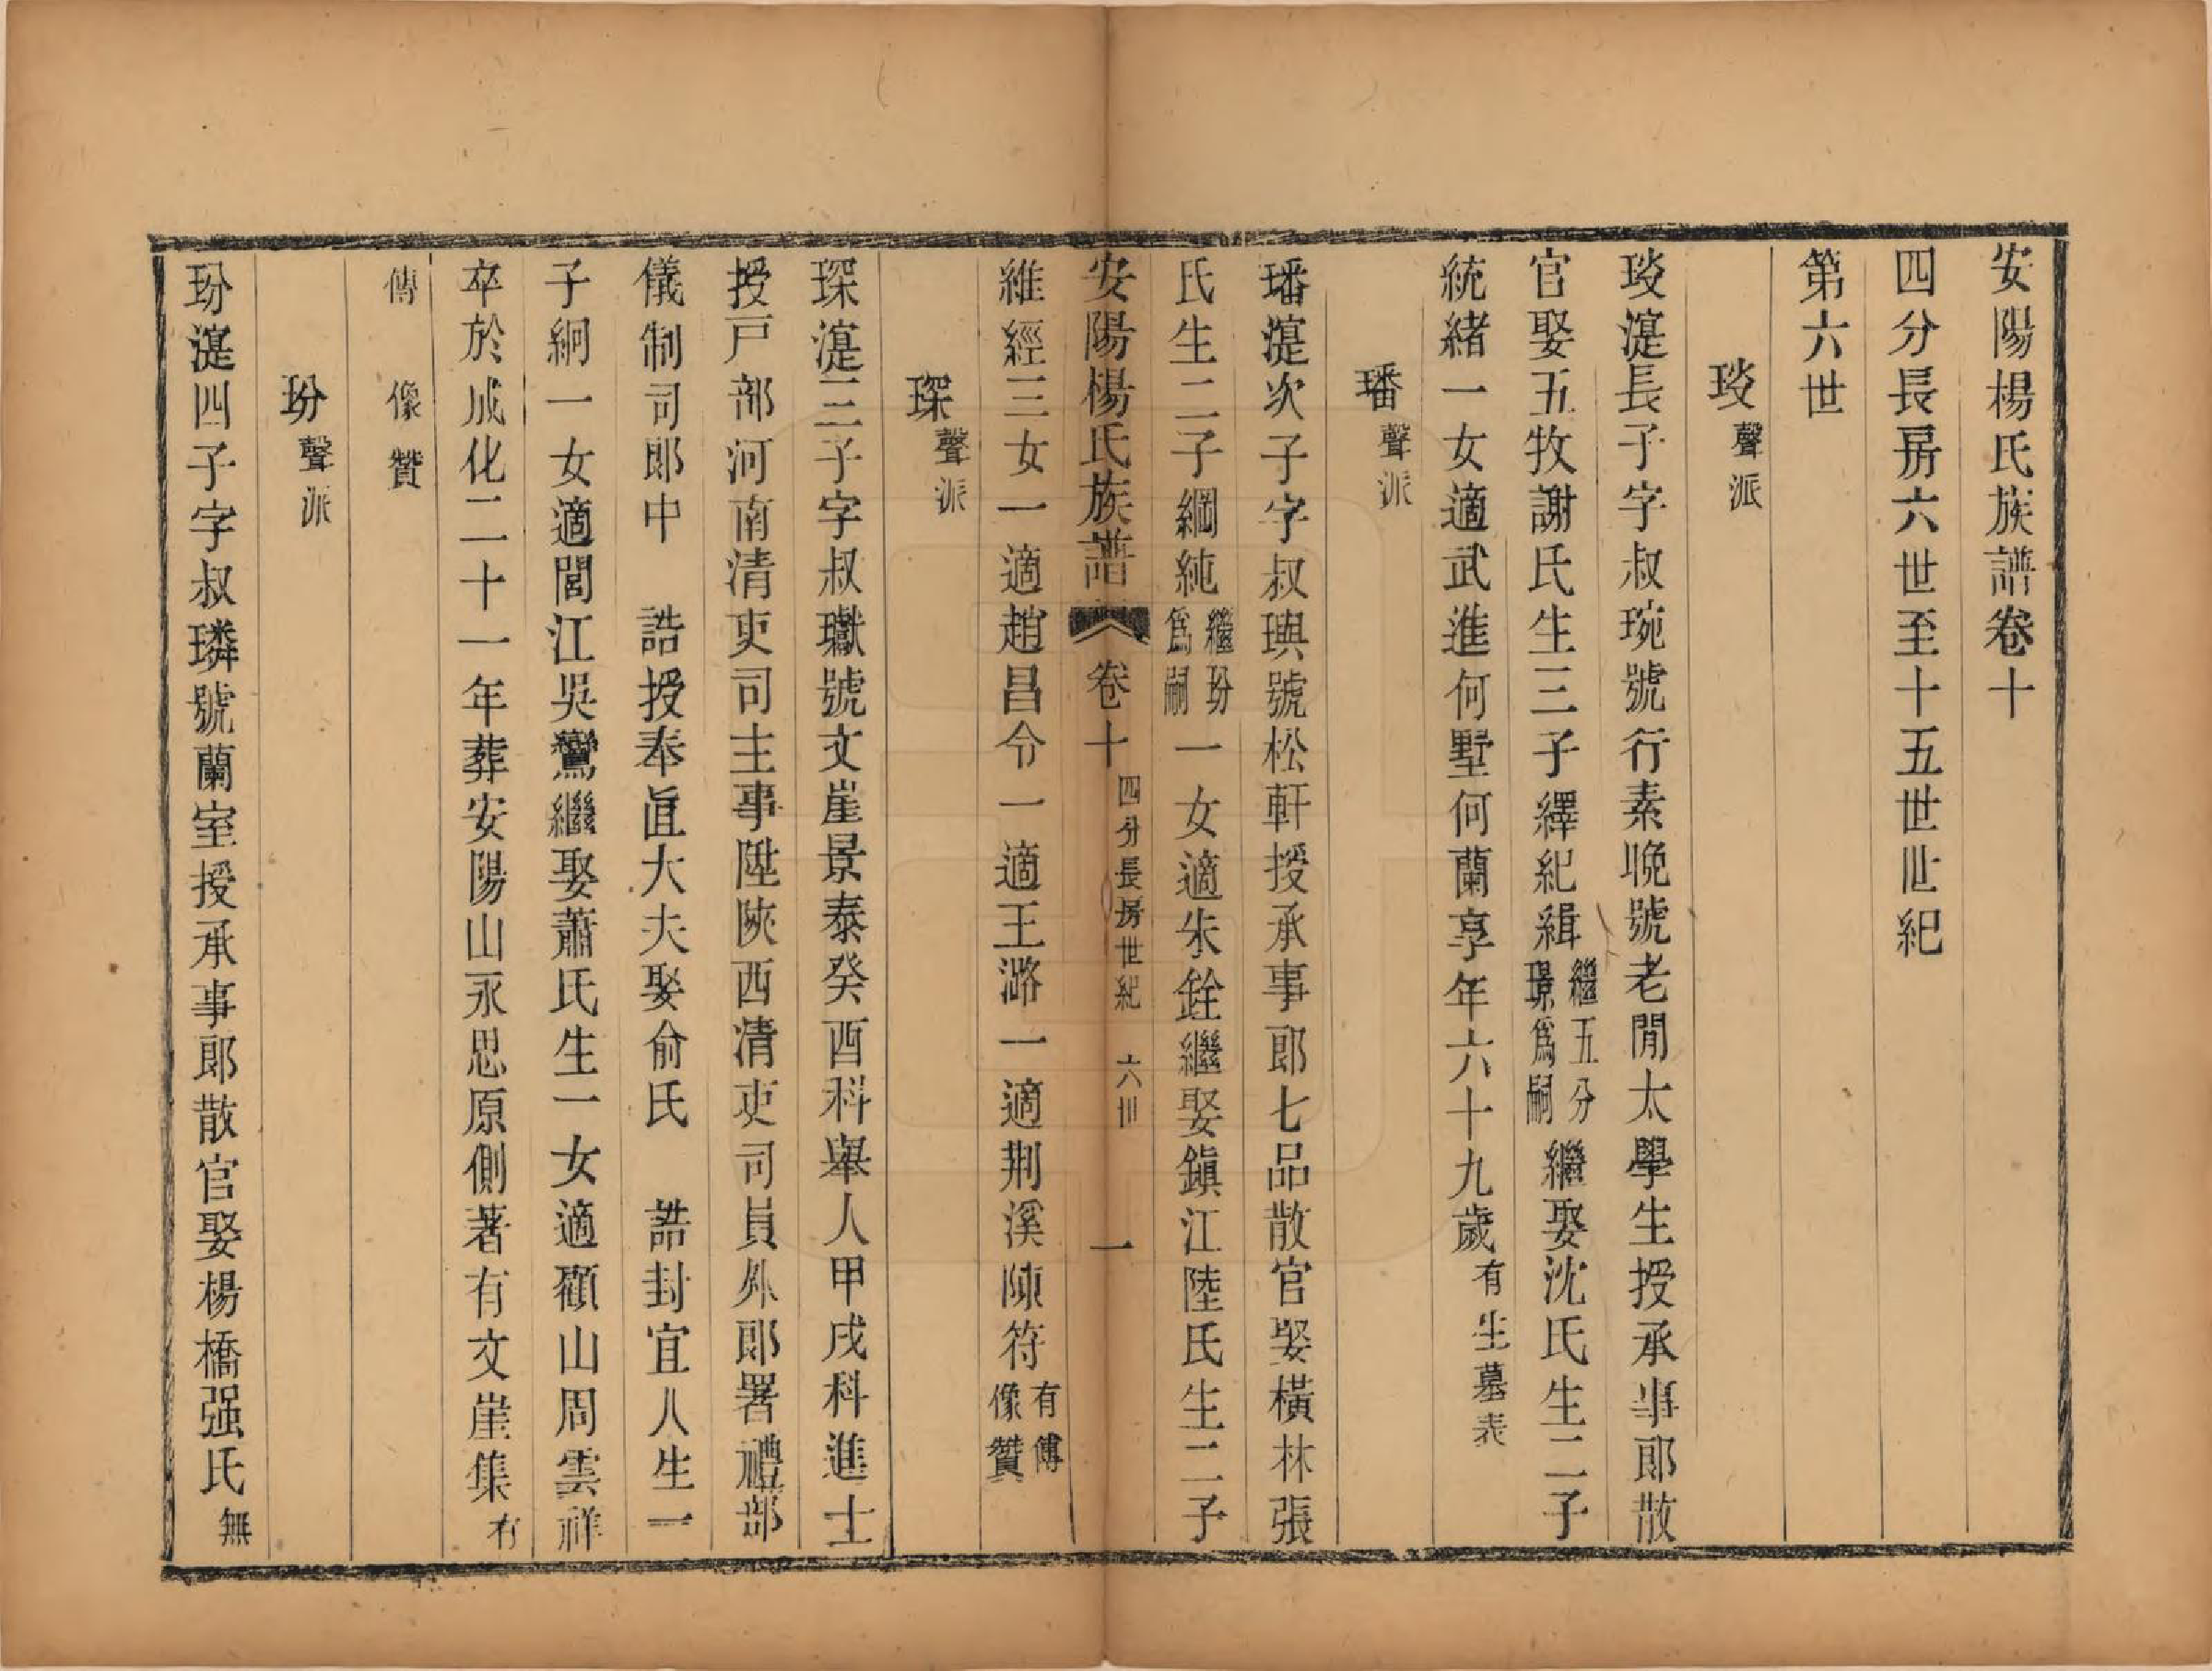 安陽楊氏族譜卷十
四分長房六世至十五世世紀
第六世
琰聲派
琰漟長子字叔琬號行素晚號老閒太學生授承事郎散
官娶五牧謝氏生三子繹紀緝繼五分璟爲嗣繼娶沈氏生二子
統緒一女適武進何墅何蘭享年六十九歲有生墓表
璠聲派
璠漟次子字叔璵號松軒授承事郎七品散官娶橫林張
氏生二子綱純繼玢爲嗣一女適朱銓繼娶鎮江陸氏生二子
安陽楊氏族譜 卷十 四分長房世紀 六世 一
維經三女一適趙昌令一適王潞一適荆溪陳符有傳像贊
琛聲派
琛漟三子字叔瓛號文崖景泰癸酉科舉人甲戌科進士
授戸部河南清吏司主事陞陝西清吏司員外郎署禮部
儀制司郎中 誥授奉直大夫娶俞氏 誥封宜人生一
子絅一女適閶江吳鸞繼娶蕭氏生一女適顧山周雲祥
卒於成化二十一年葬安陽山永思原側著有文崖集有
傳 像贊
玢聲派
玢漟四子字叔璘號蘭室授承事郎散官娶楊橋强氏無